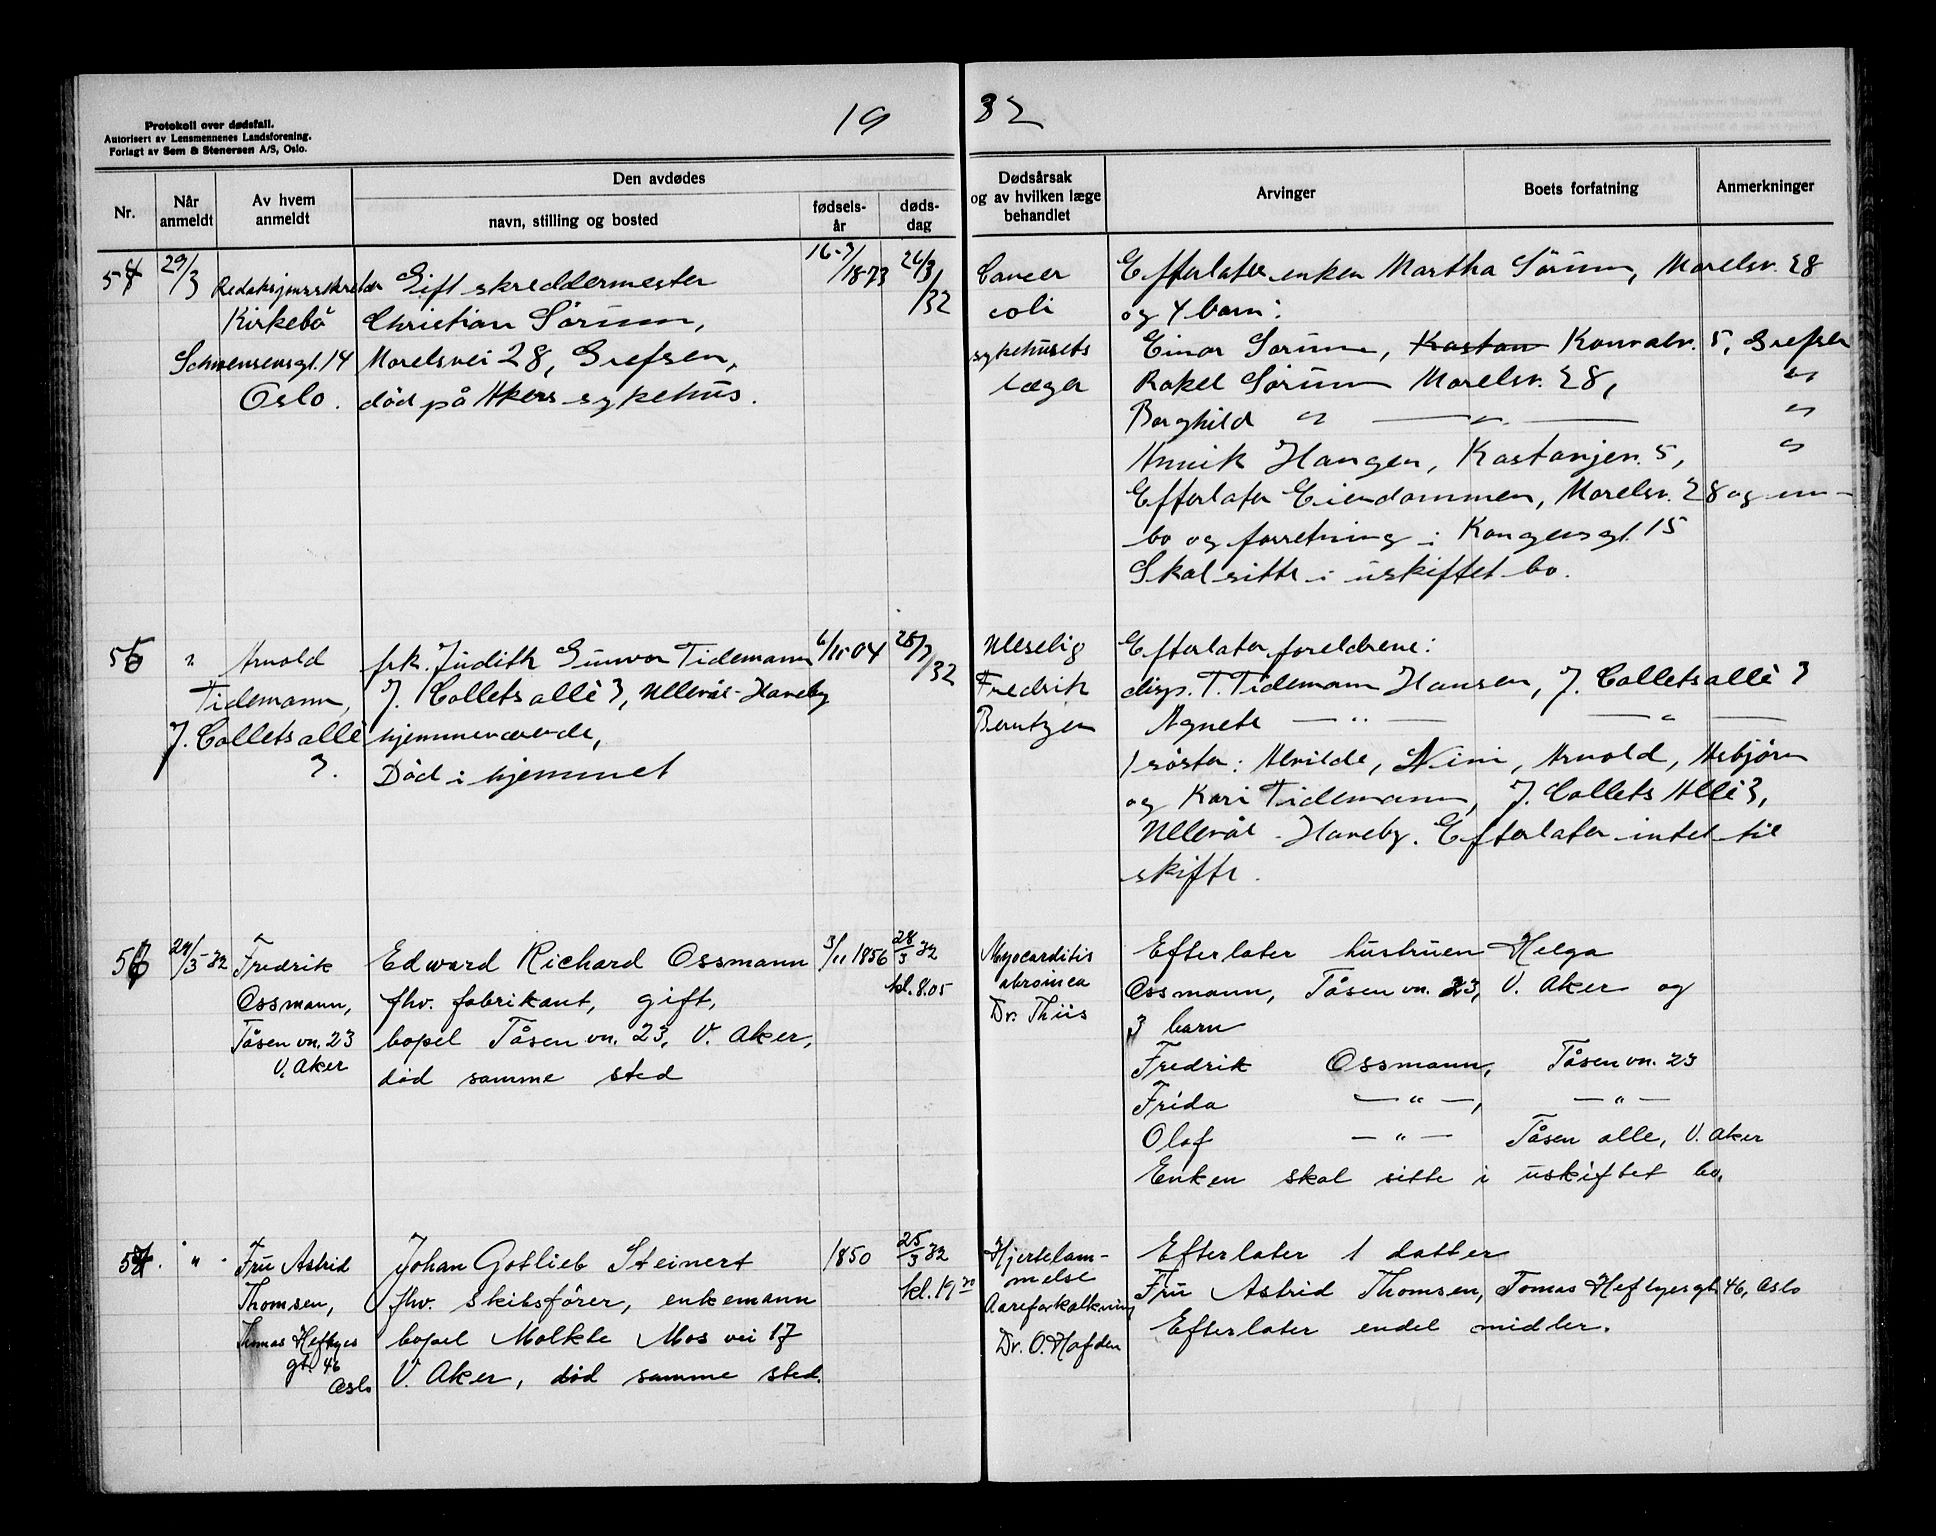 Protokoll over dødsfall.
Autorisert av Lensmennenes Landsforening.
Forlagt av Sem & Stenersen A/S, Oslo.
19 32
Nr.
Når anmeldt
Av hvem anmeldt
Den avdødes
navn, stilling og bosted
fødsels-år
døds-dag
Dødsårsak og av hvilken læge behandlet
Arvinger
Boets forfatning
Anmerkninger
54 29/3 Redaksjonssekretær
Kirkebö
Schwensensgt. 14
Oslo.
Gift skreddermester
Christian Sörum,
Morelsvei 28, Grefsen,
död på Akers sykehus.
16-3/1873
26/3/32
Cancer
coli
sykehusets
læger
Efterlater enken Martha Sörum, Morelsv. 28
og 4 barn:
Einar Sörum, Konvalv. 5, Grefsen
Rakel Sörum Morelsv. 28, "
Borghild " — " — "
Annik Hangen, Kastanjev. 5, "
Efterlater Eiendommen, Morelsv. 28 og inn-
bo og forretning i Kongensgt. 15
Skal sitte i uskiftet bo.
55 " Arnold
Tidemann,
J. Collets allè
3.
frk. Judith Gunvor Tidemann
J. Collets allè 3, Ullevål-Haveby
hjemmeværende,
Död i hjemmet
6/11-04
28/3/32
Uleselig
Fredrik
Bentzen
Efterlater foreldrene:
disp. T. Tidemann Hansen, J. Collets allè 3
Agnete — " — — " —
söster: Alvilde, Nini, Arnold, Asbjörn
og Kari Tidemann, J. Collets Allè 3,
Ullevål-Haveby. Efterlater intet til
skifte.
56 29/3-32 Fredrik
Ossmann,
Tåsen vn. 23
V. Aker
Edward Richard Ossmann
fhv. fabrikant, gift,
bopel Tåsen vn. 23, V. Aker,
död samme sted
3/11 1856
28/3 32
kl. 8.05
Myocarditis
chronica
Dr. Thiis
Efterlater hustruen Helga
Ossmann, Tåsen vn. 23, V. Aker og
3 barn
Fredrik Ossmann, Tåsen vn. 23
Frida — " —, — " —
Olaf — " — Tåsen alle, V. Aker
Enken skal sitte i uskiftet bo.
57. " Fru Astrid
Thomsen,
Thomas Heftyes
gt. 46
Oslo
Johan Gotlieb Steinert
fhv. skibsförer, enkemann
bopel Molkte Mos vei 17
V. Aker, död samme sted.
1850
25/3 32
kl. 19
Hjertelam-
melse
Aareforkalkning
Dr. O. Hafden
Efterlater 1 datter
Fru Astrid Thomsen, Tomas Heftyesgt. 46, Oslo
Efterlater endel midler.